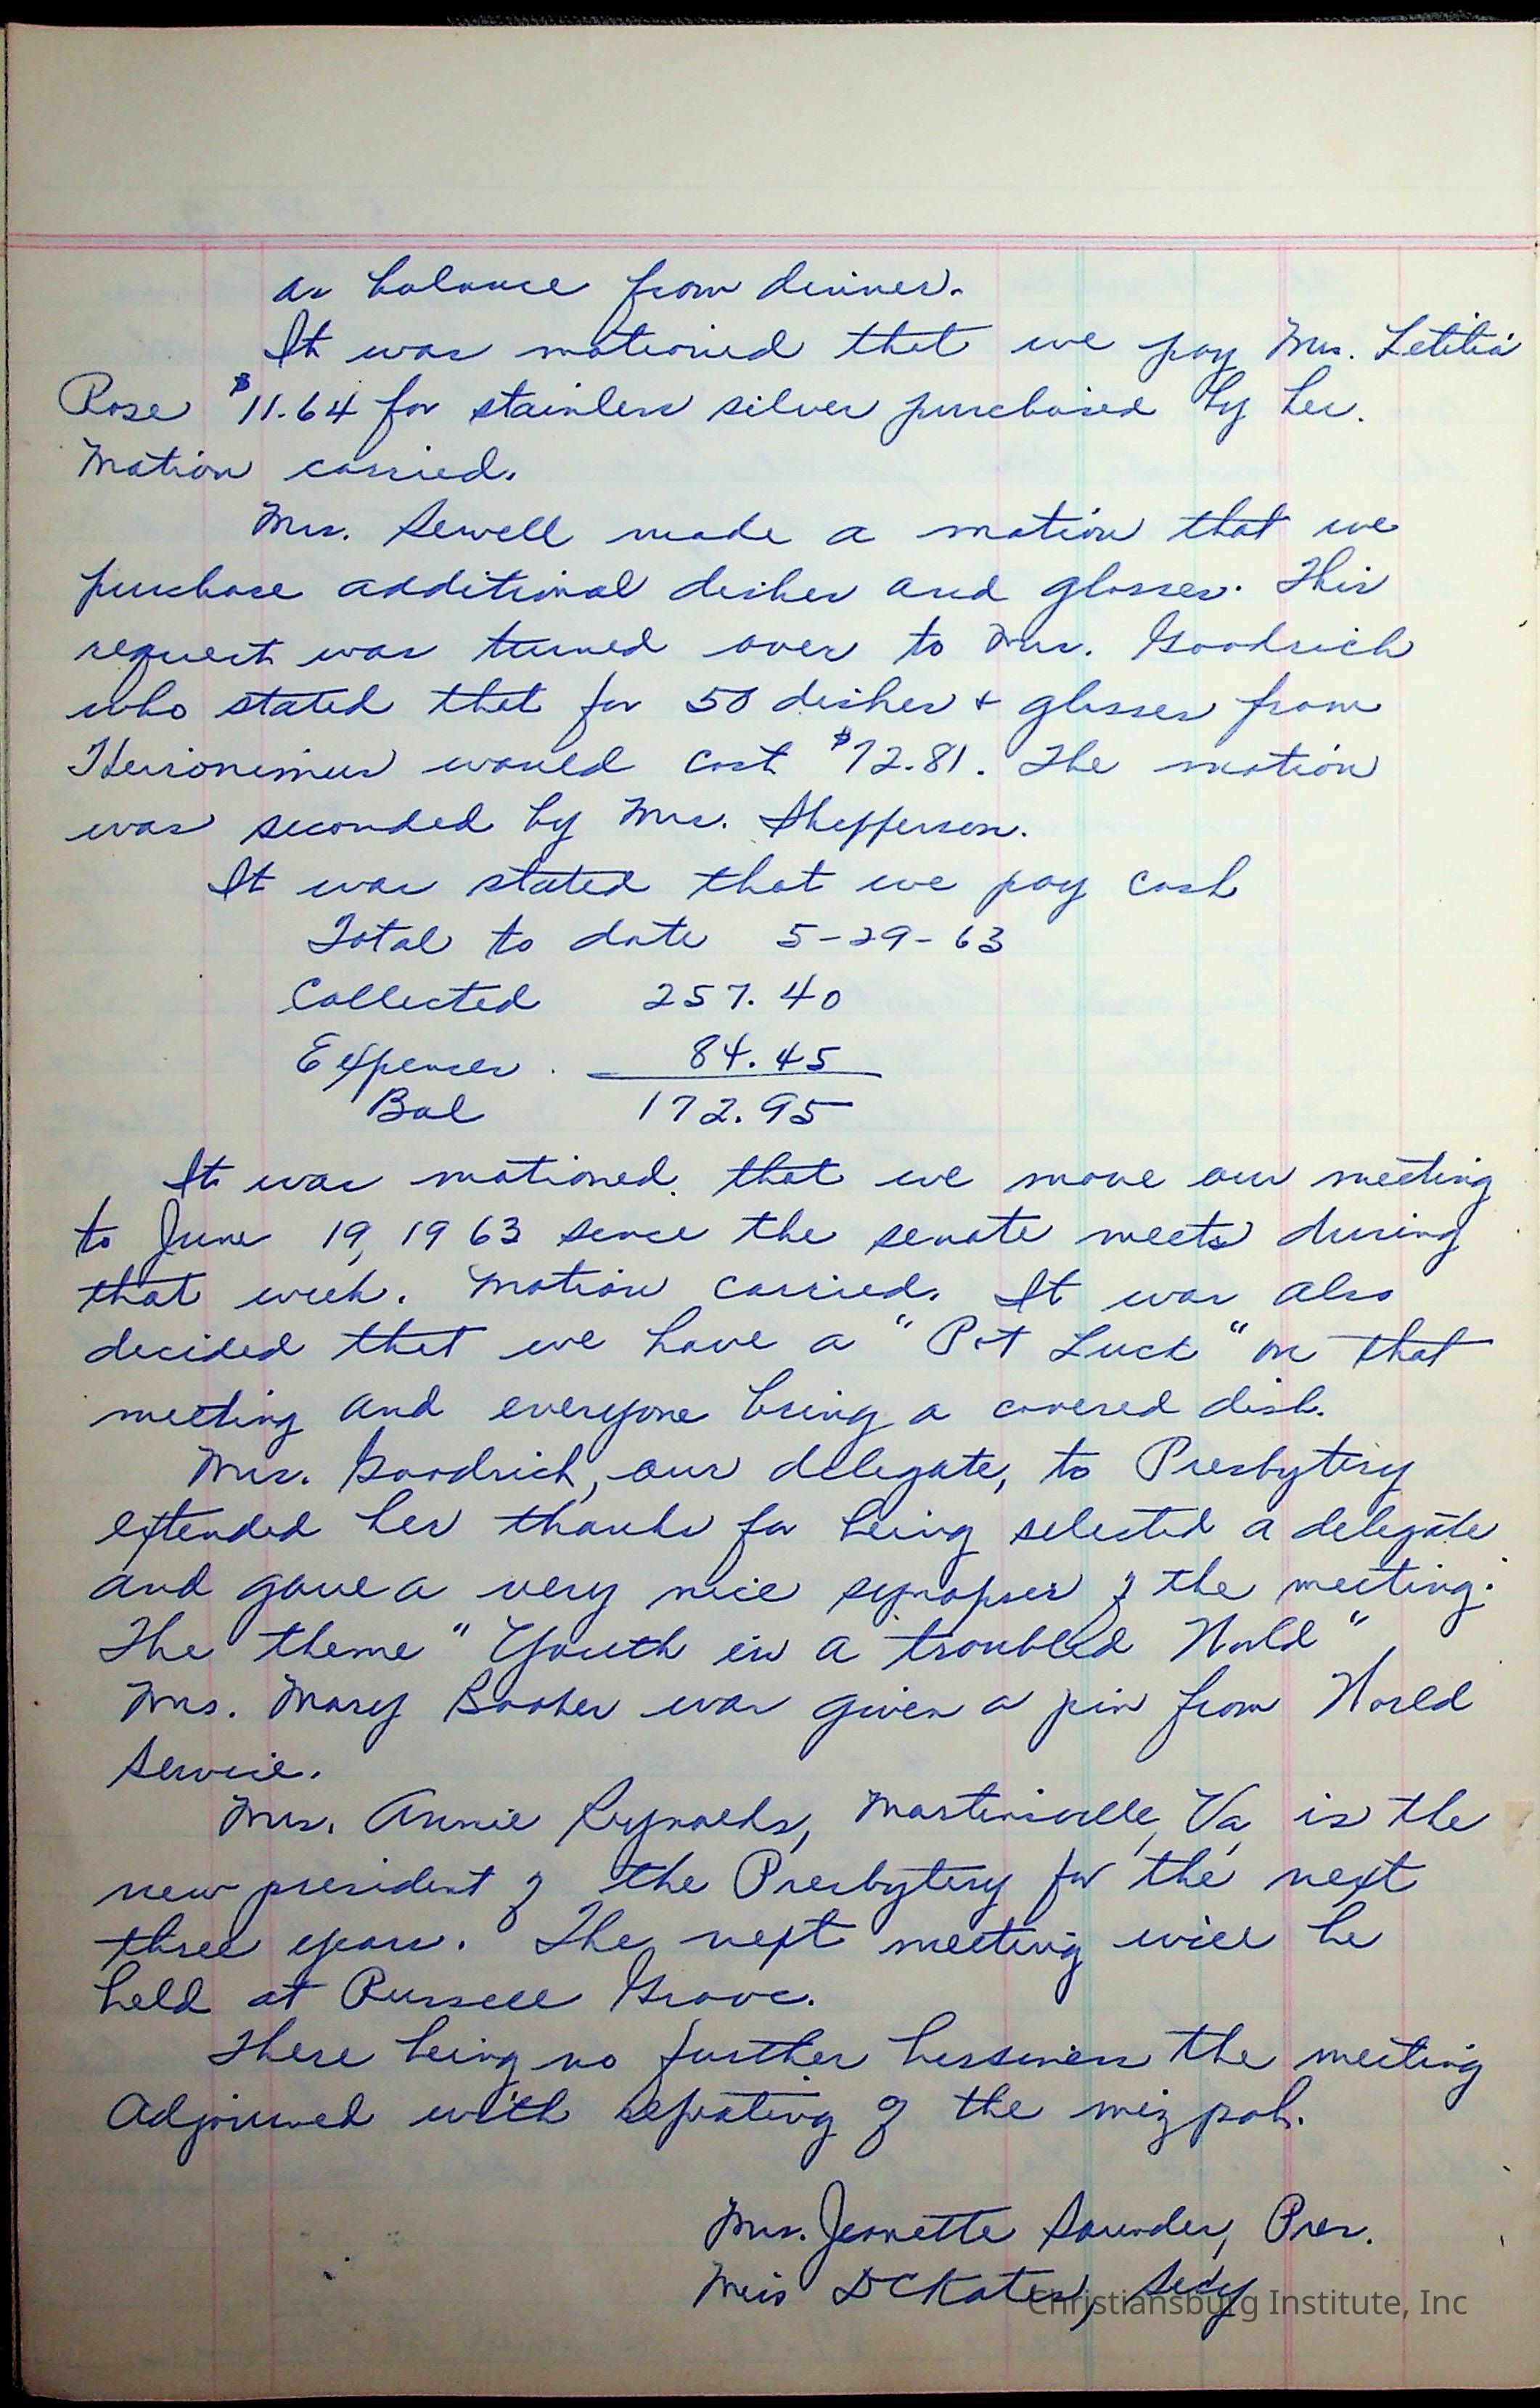 as balance from dinner.
It was motioned that we pay Mrs. Letitia
Rose $11.64 for stainless silver purchased by her.
Motion carried.
Mrs. Sewell made a motion that we
purchase additional dishes and glasses. This
request was turned over to Mrs. Goodrich
who stated that for 50 dishes + glasses from
Heironimus would cost $72.81. The motion
was seconded by Mrs. Shepperson.
It was stated that we pay cash
Total to date 5-29-63
Collected 257.40
Expenses 84.45
Bal 172.95
It was motioned that we move our meeting
to June 19, 1963 since the senate meets during
that week. Motion carried. It was also
decided that we have a "Pot Luck" on that
meeting and everyone bring a covered dish.
Mrs. Goodrich, our delegate, to Presbytery
extended her thanks for being selected a delegate
and gave a very nice synopses of the meeting.
The theme "Youth in a troubled World"
Mrs. Mary Booker was given a pin from World
Service.
Mrs. Annie Reynolds, Martinsville, Va, is the
new president of the Presbytery for the next
three years. The next meeting will be
held at Russell Grove.
There being no further bussiness the meeting
adjourned with repeating of the mizpah.
Mrs. Jeanette Saunders, Pres.
Miss D C Kates, Secy
Christiansburg Institute, Inc